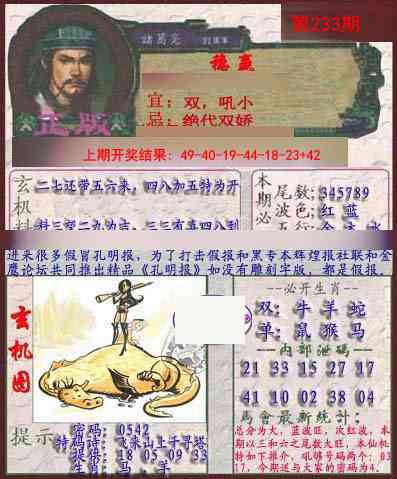 第233期
諸葛亮
稳赢
宜：双，吼小
忌：绝代双娇
正版
上期开奖结果：49-40-19-44-18-23+42
玄机
二七还带五六来，四八加五特为开
本期必
尾数:345789
波色:红 蓝
进来很多假冒孔明报，为了打击假报和黑专本辉煌报社联和金
鹰论坛共同推出精品《孔明报》如没有雕刻字版，都是假报。
玄机图
必开生肖
双: 牛 羊 蛇
单: 鼠 猴 马
内部泄码
21 33 15 27 17
41 10 02 38 04
馬會最新統計:
总分为大，蓝波旺，次红波，本
期以三和六之尾数大旺，本仙机
特如下推介，吼够号码两个：03
17，今期送与大家的密码为4.
提示
密码: 0542
特码诗: 飞来山上千寻塔
提供: 18 05 09 33
生肖: 马，羊